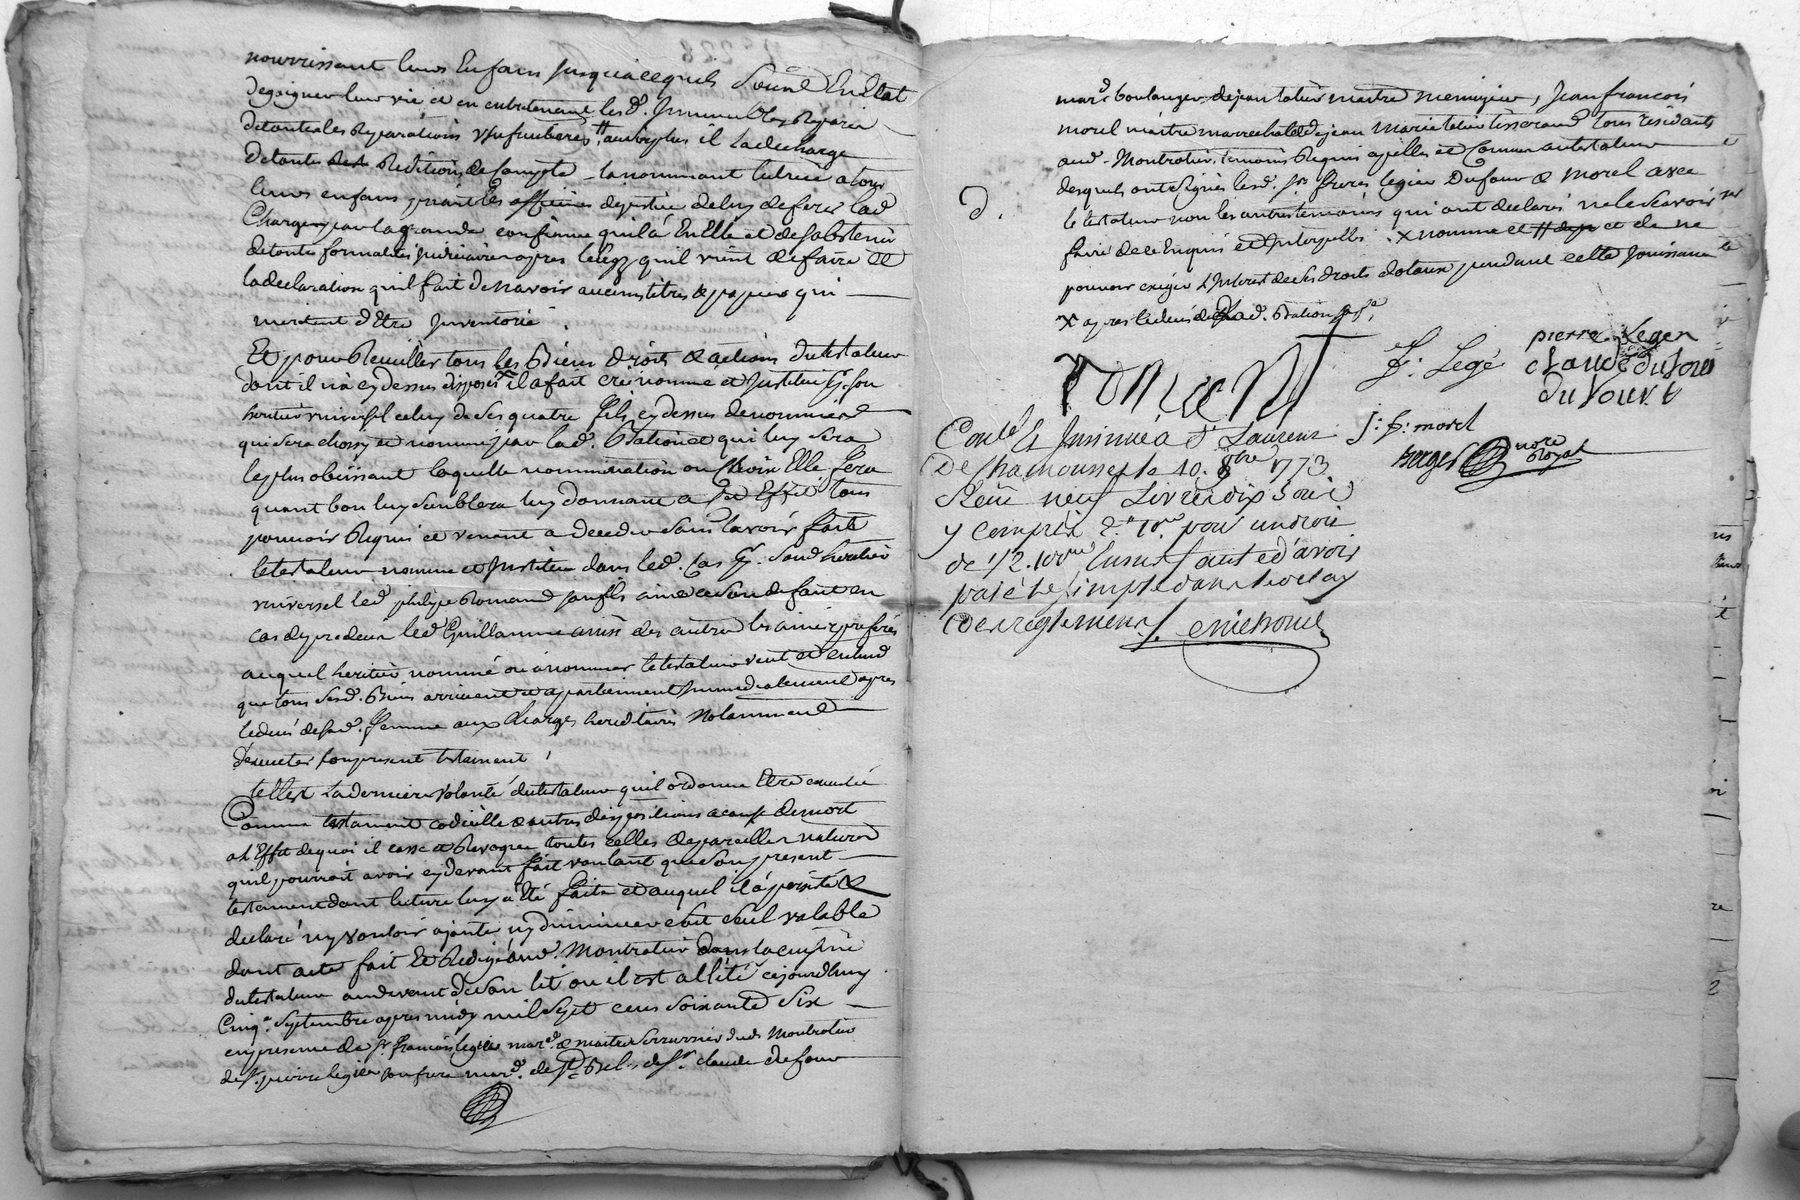 nourrissant leurs Enfans jusqu'a ce quils Soient En Etat
de gaigner leur vie et en entretenant lesd. Immeubles Reparés
de toutes les Reparations usufruitieres, # au surplus il la decharge
de toute Redition de Compte - la nommant tutrice a tous
leurs enfans priant les officiers de justice de luy deferer lad.
Charge par la grande confiance quil a En Elle et de Sabstenir
de toutes formalités judiciaires apres le legs quil vient de faire et
la declaration quil fait de n'avoir aucuns titres & papiers qui
meritent d'Etre Inventorié.
Et pour Recueillir tous les Biens Droits & actions du testateur
dont il n'a cy dessus disposés il a fait crée nomme et Institue son
heritier universel celuy de Ses quatre fils cy dessus denommés
qui sera choisy et nommé par lad. Bation et qui luy sera
le plus obeissant laquelle nommination ou choix Elle fera
quant bon luy semblera luy donnant a cet Effet tous
pouvoir Requis et venant a deceder sans l'avoir fait
le testateur nomme et Institue dans led. Cas pr. Son heritier
universel led. philipe Romand son fils ainé et a son defaut en
cas de predeces led. Guillaume ainsi des autres les ainés preferés
auquel heritier nommé ou a nommer le testateur veut et entend
que tous sesd. Biens arrivent et apartiennent Immediatement apres
le deces de sad. femme aux charges hereditaires Notamment
d'executer son present testament.
telle est La derniere volonté du testateur quil ordonne Etre executée
Comme testament codicille & autres dispositions a cause de mort
a l'Effet de quoi il casse et Revoque toutes celles de pareilles natures
quil pourroit avoir cy devant fait voulant que Son present
testament dont lecture luy a Eté faite et auquel il a persisté &
declaré n'y vouloir ajouter n'y diminuer soit seul valable
dont acte fait et Redigé aud. Montrotier dans la cuisine
du testateur au devant de Son lit ou il est allité cejourdhuy
Cinq. Septembre apres midy mil Sept cens Soixante Six
en presence de Sr. francois legier mard. & maitre Serrurier dud. Montrotier
de Sr. pierre legier son frere mard. de St. Bel, de Sr. claude dufour
mard. boulanger, de jean maitre menuizier, Jean francois
morel maitre marrechal et de jean marie tisserand tous residants
aud. Montrotier, temoins Requis apellés et Connus au testateur
desquels ont Signés lesd. Srs. freres legier Dufour & morel avec
le testateur non les autres temoins qui ont declaré ne le Scavoir
faire de ce Enquis et Interpellés. X nomme et # et de ne
pouvoir exiger l'Interest de ses droits dotaux pendant cette Jouissance
X apres le deces de lad. Bation
D.
romant
f: Legé
pierre Leger
claude dufour
J: f: morel
notre Royal
Conlé & Insinué a St. Laurent
De chamousset le 10. 8bre 1773
Reçu neuf Livres dix sous
y compris 2.# 10.s pour un droit
de 1/2. 100me Insus faute d'avoir
paié le simple dans le delay
des reglements.